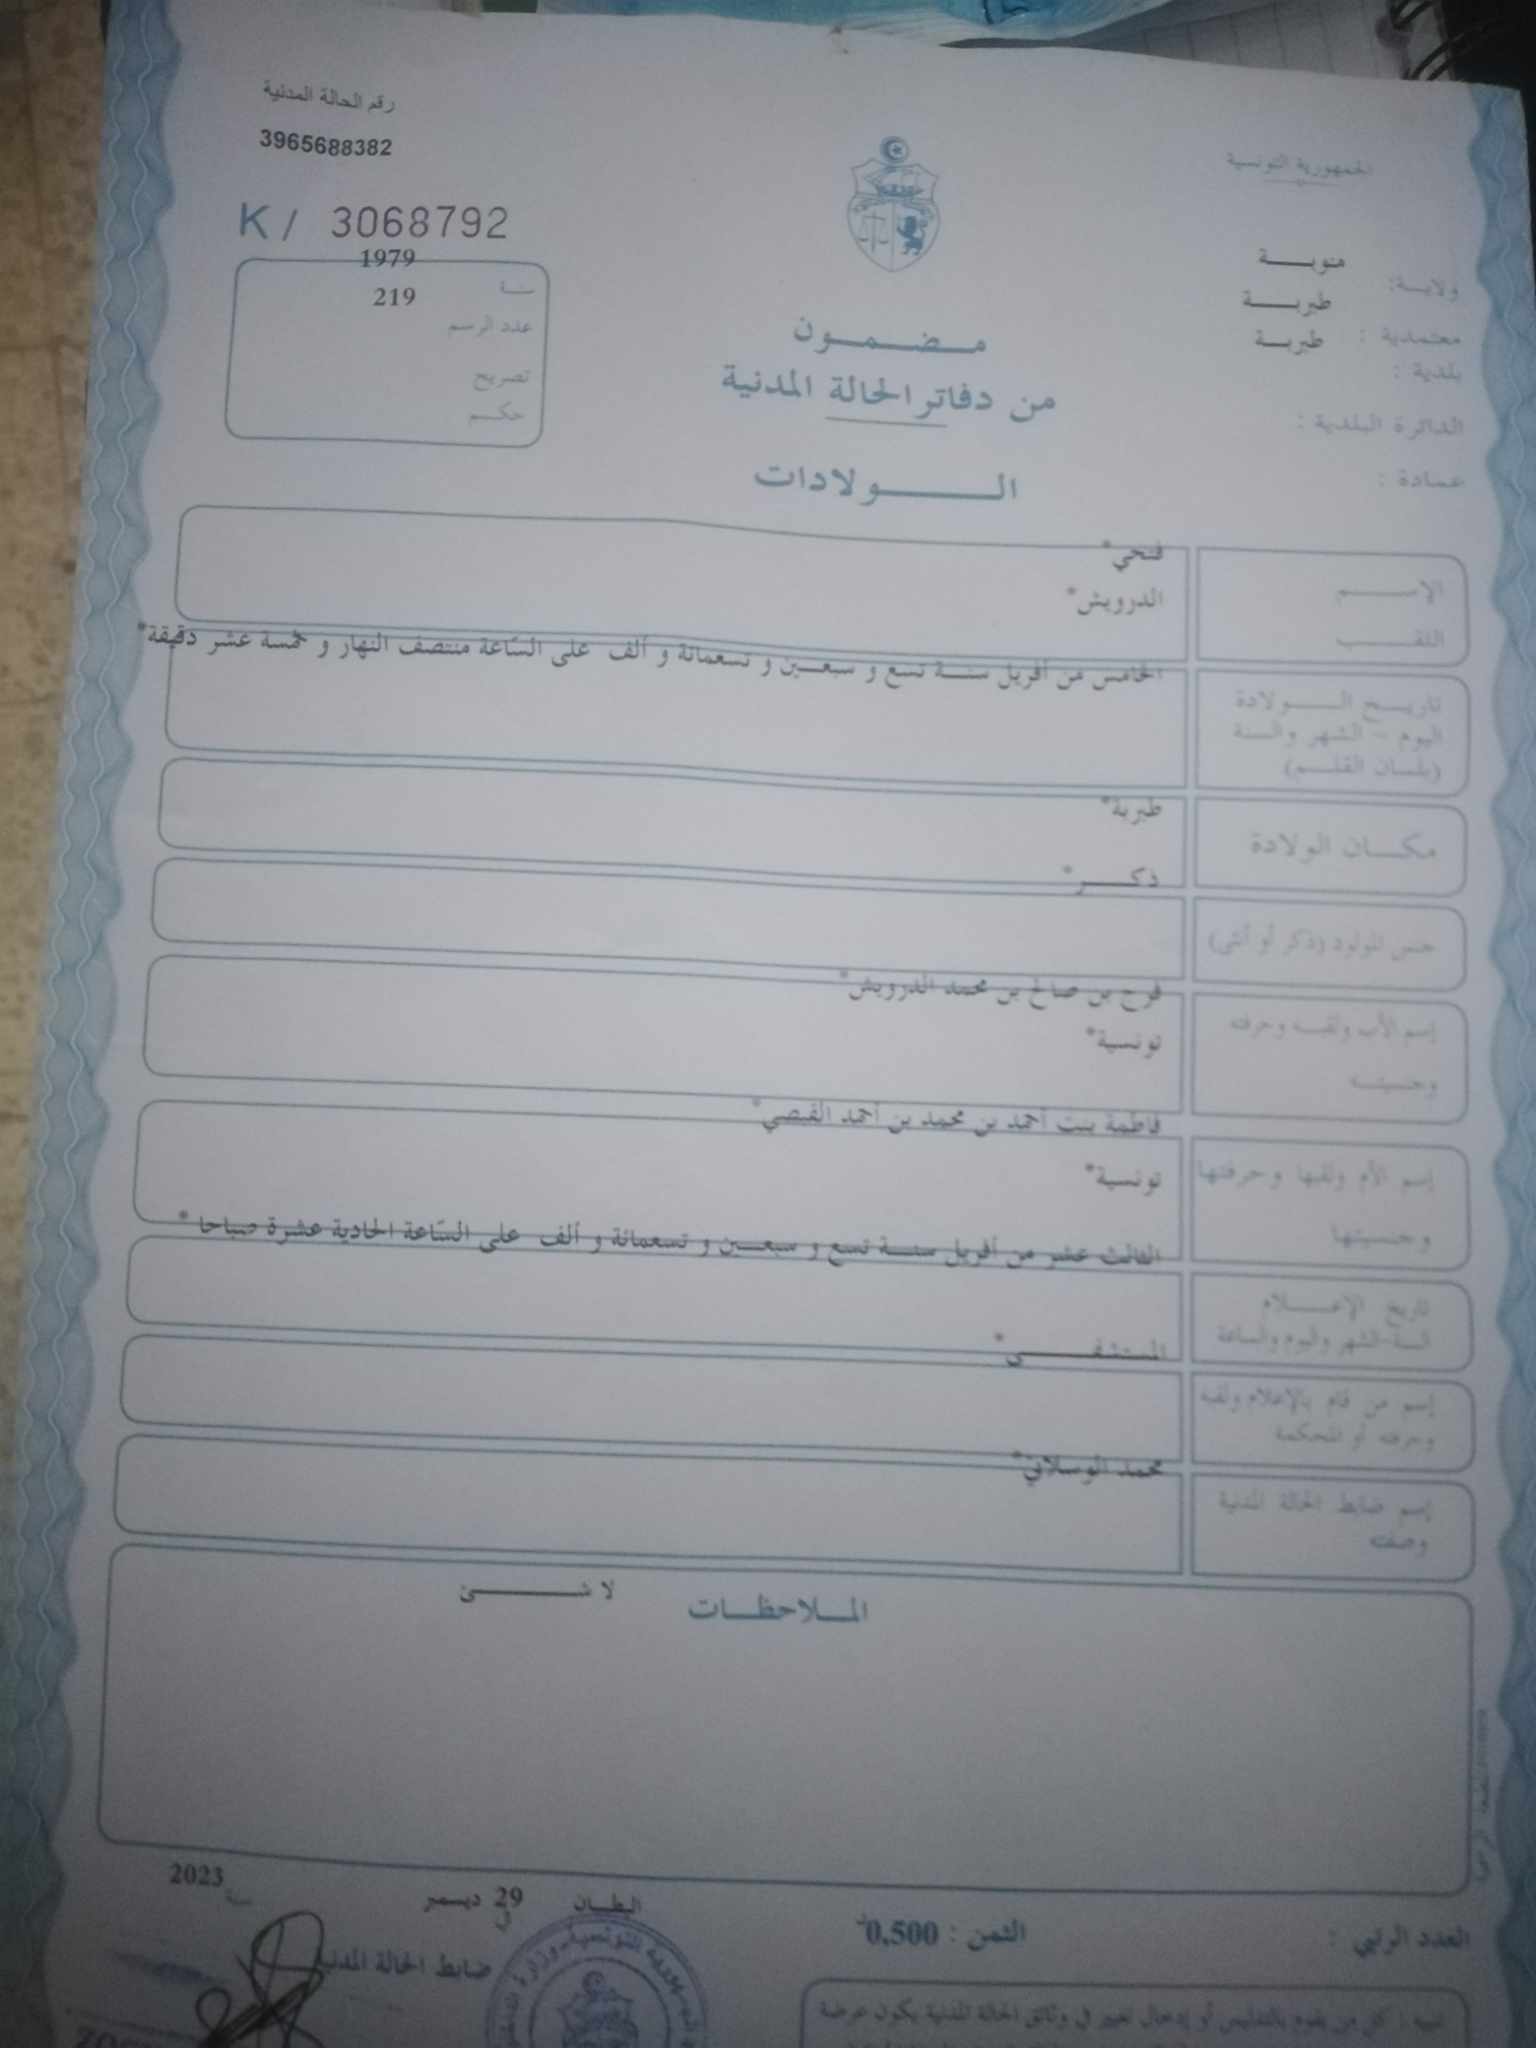 الجمهورية التونسية
رقم الحالة المدنية
3965688382
K / 3068792
ولايـــة: منوبـــــة
معتمدية : طبربـــــة
بلدية : طبربـــــة
الدائرة البلدية :
عمادة :
سنــة 1979
عدد الرسم 219
تصريح
حكـــم
مـــضـــمـــون
من دفاتر الحالة المدنية
الـــــــولادات
الإســــــم فتحي*
اللقـــــب الدرويش*
تاريـــخ الـــــولادة
اليوم - الشهر والسنة
(بلسان القلـــم)
الخامس من أفريل سنـــة تسع و سبعـــين و تسعمائة و ألف على السّاعة منتصف النهار و خمسة عشر دقيقة*
مكـــان الولادة طبربة*
جنس المولود (ذكر أو أنثى) ذكـــــر*
إسم الأب ولقبـــه وحرفته فرج بن صالح بن محمد الدرويش*
وجنسيتـــه تونسية*
إسم الأم ولقبها وحرفتها فاطمة بنت أحمد بن محمد بن أحمد القبصي*
وجنسيتها تونسية*
تاريخ الإعـــــلام
السنة-الشهر واليوم والساعة
الثالث عشر من أفريل سنـــة تسع و سبعـــين و تسعمائة و ألف على السّاعة الحادية عشرة صباحا *
إسم من قام بالإعلام ولقبه
وحرفته أو المحكمة
المستشفـــــــى*
إسم ضابط الحالة المدنية
وصفته
محمد الوسلاتي*
الملاحظـــات
لا شـــــــئ
العدد الرتبي :
الثمن : 0,500
البطـــان في 29 ديسمبر سنة 2023
ضابط الحالة المدنية
تنبيه : كل من يقوم بالتدليس أو إدخال تغيير في وثائق الحالة المدنية يكون عرضة